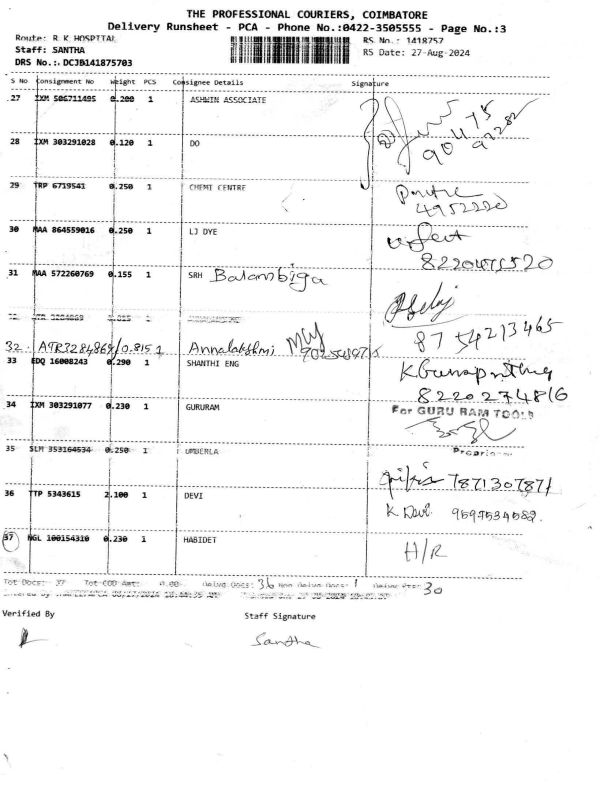 THE PROFESSIONAL COURIERS, COIMBATORE
Delivery Runsheet - PCA - Phone No.:0422-3505555 - Page No.:3
Route: R K HOSPITAL RS No.: 1418757
Staff: SANTHA RS Date: 27-Aug-2024
DRS No.:.DCJB141875703
S No Consignment No Weight PCS Consignee Details Signature
27 IXM 506711495 0.200 1 ASHWIN ASSOCIATE
28 IXM 303291028 0.120 1 DO
29 TRP 6719541 0.250 1 CHEMI CENTRE
4952220
30 MAA 864559016 0.250 1 LJ DYE
31 MAA 572260769 0.155 1 SRH Balambiga
8754213465
32. ATR3284869/0.815 1 Annalakshmi
33 EDQ 16008243 0.290 1 SHANTHI ENG
8220274816
34 IXM 303291077 0.230 1 GURURAM
For GURU RAM TOOLS
35 SLM 353164534 0.250 1 UMBERLA
7871307871
36 TTP 5343615 2.100 1 DEVI
K Devi 9597534582.
37 NGL 100154310 0.230 1 HABIDET H/R
Tot Docs: 37 Tot COD Amt: 0.00 Delvd Docs: 36 Non Delvd Docs: 1 30
Verified By Staff Signature
Santha